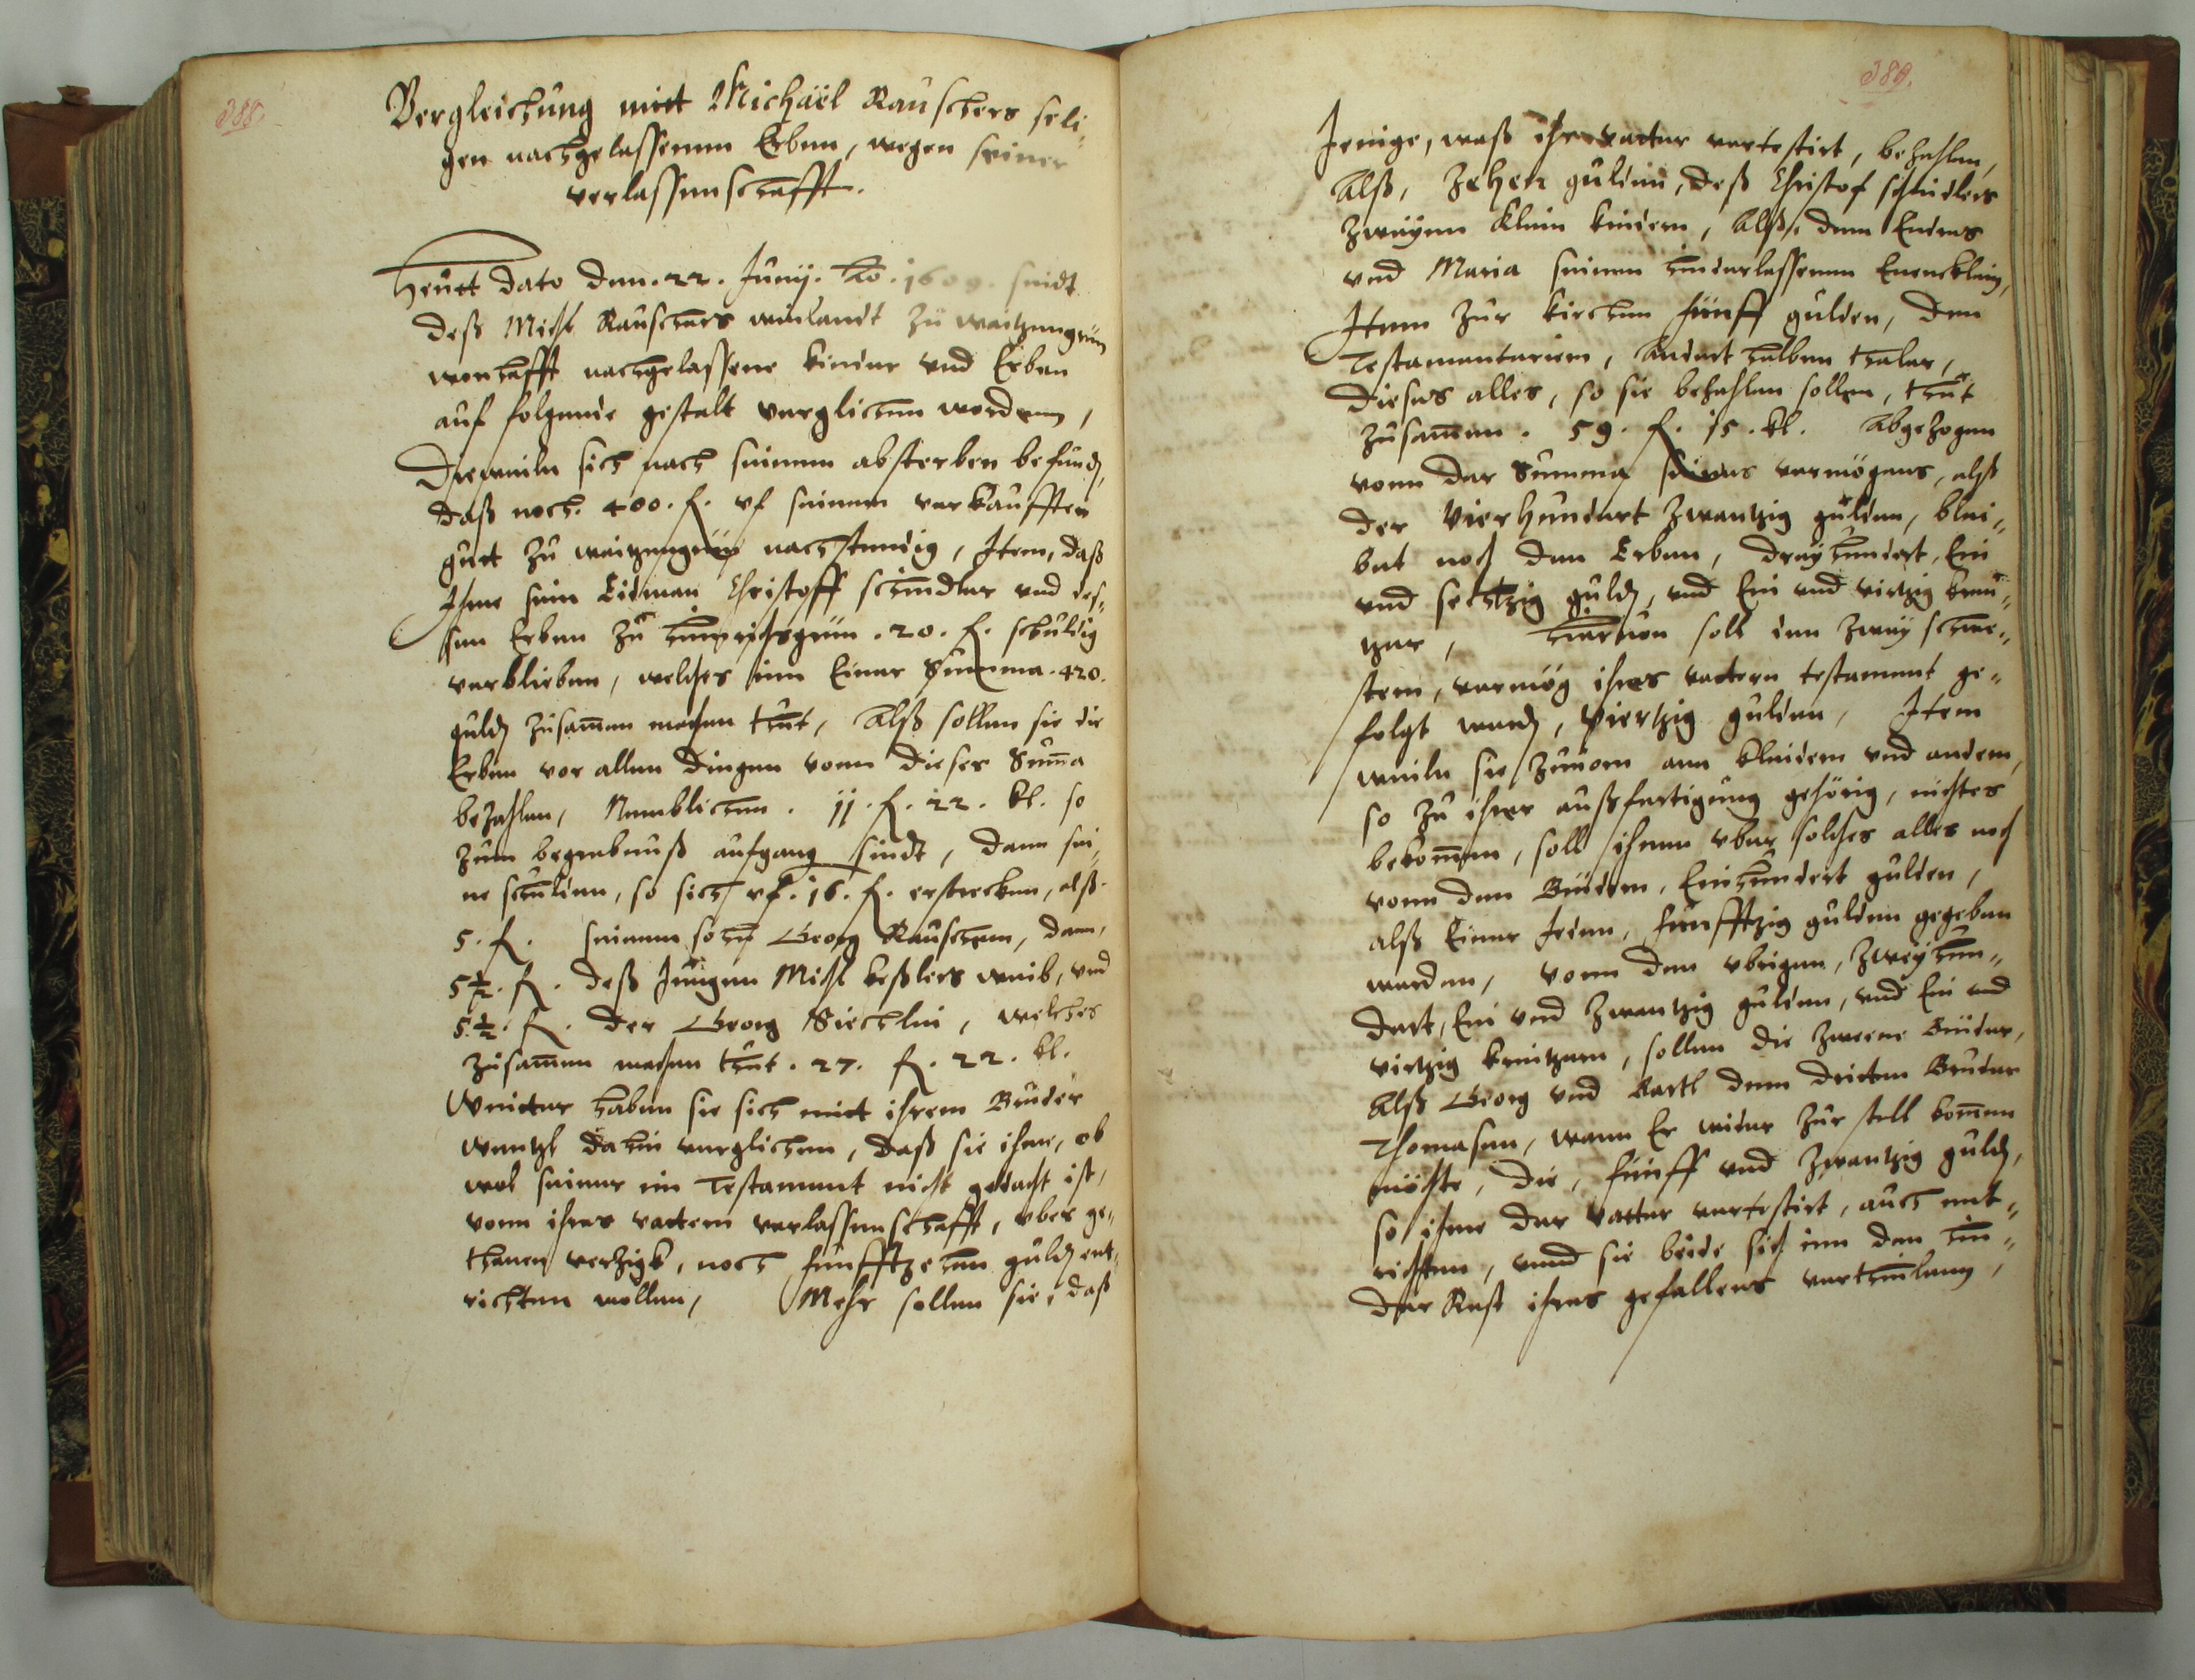 388.
Vergleichung mitt Michaël Rauschers seli-
gen nachgelassenen Erben, wegen seiner
verlassenschafft.
Heutt dato den. 22. Junij. Ao. 1609. seindt
deß Michl Rauschers weilandt zu
wonhafft nachgelassene kinder vnd Erben
auf folgende gestalt verglichen worden,
Dieweiln sich nach seinem absterben befund,
daß noch. 400. f. vf seinem verkaufften
gutt zu nachstendig, Item, daß
Ihme sein Eidman Christoff schindler vnd des-
sen Erben zu . 20. f. schuldig
verblieben, welches inn Einer Summa. 420.
guld zusamen machen thut, Alß sollen sie die
Erben vor allen dingen vonn dieser Suma
bezahlen, Nemblichen. 11. f. 22. kl. so
zum begrebnuß aufgang sindt, dann sei-
ne schulden, so sich vf. 16. f. erstrecken, alß.
5. f. seinem sohn Georg Rauschern, dann,
5½. f. deß Jungen Michl keßlers weib, vnd
5.½. f. der Georg Siechlin, welches
zusamen machen thut. 27. f. 22. kl.
Weitter haben sie sich mitt ihrem Bruder
Wentzl dahin verglichen, daß sie ihme, ob
wol seiner im Testament nicht gedacht ist,
vonn ihres vattern verlassenschafft, vber ge-
thanen verzigk, noch funfftzehen guld ent-
richten wollen, Mehr sollen sie, daß
389.
Jenige, waß ihr vatter vertestirt, bezahlen,
Alß, Zehen gulden, deß Christof schindlers
zweyen klein kindern, Alß, dem Endres
vnd Maria seinen hinderlassenen Enencklein,
Item zur kirchen fünff gulden, den
Testamentarien, Andert halben thaler,
Dieses alles, so sie bezahlen sollen, thut
zusamen. 59. f. 15. kl. Abgezogen
vonn der Summa seines vermögens, alß
der Vierhundert zwantzig gulden, blei-
bet noch den Erben, dreyhundert, Ein
vnd sechtzig guld, vnd Ein vnd viertzig kreu-
tzer, Hieruon soll den zwey schwe-
stern, vermög ihres vattern testament ge-
folgt werd, Viertzig gulden, Item
weiln sie zuuorn ann kleidern vnd andern,
so zu ihrer außfertigung gehörig, nichtes
bekomen, soll ihnen vber solches alles noch
vonn den Brüdern, Einhundert gulden,
alß Einer Jeden, funfftzig gulden gegeben
werden, vonn den vbrigen, zweyhun-
dert, Ein vnd zwantzig gulden, vnd Ein vnd
viertzig kreutzern, sollen die zweene Brüder,
Alß Georg vnd Bartl dem dritten Bruder
Thomasen, wann Er wider zur stell komen
möchte, die, fünff vnd zwantzig guld,
so ihme der vatter vertestirt, auch ent-
richten, vnnd sie beide sich inn den hin-
der Rest ihres gefallens vertheilen,